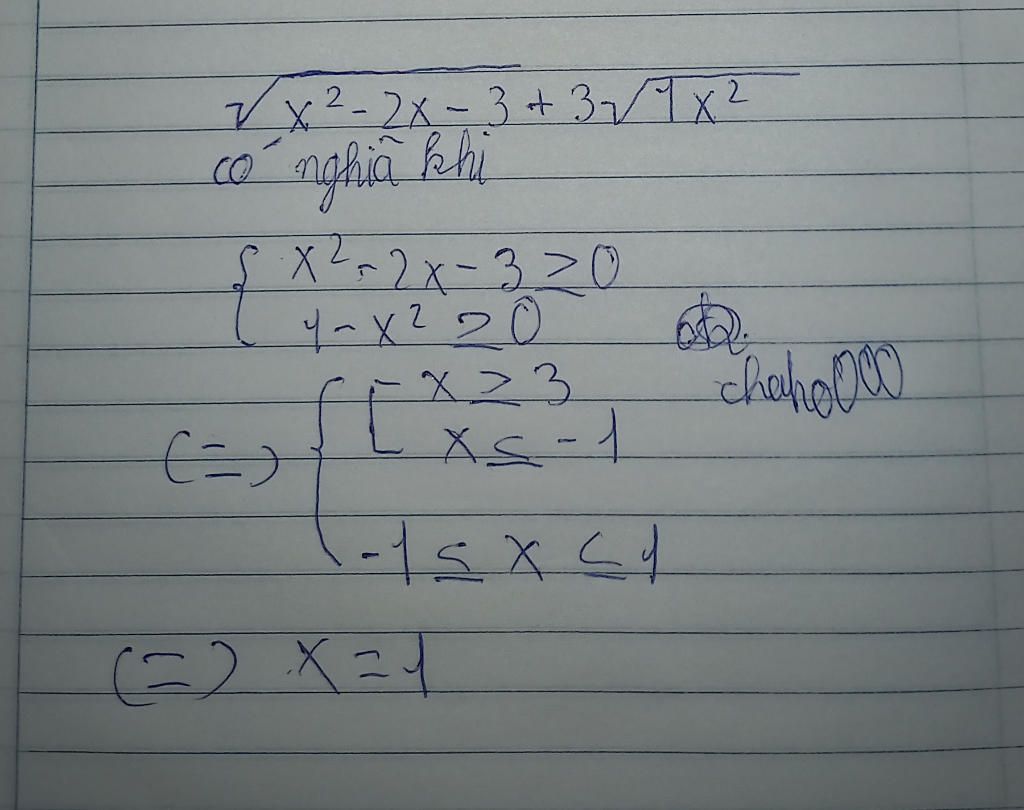 √x² - 2x - 3 + 3√1x²
có nghĩã khi
{ x² - 2x - 3 ≥ 0
1 - x² ≥ 0
chaho000
(=) { [ - x ≥ 3
x ≤ - 1
-1 ≤ x ≤ 1
(=) x = 1